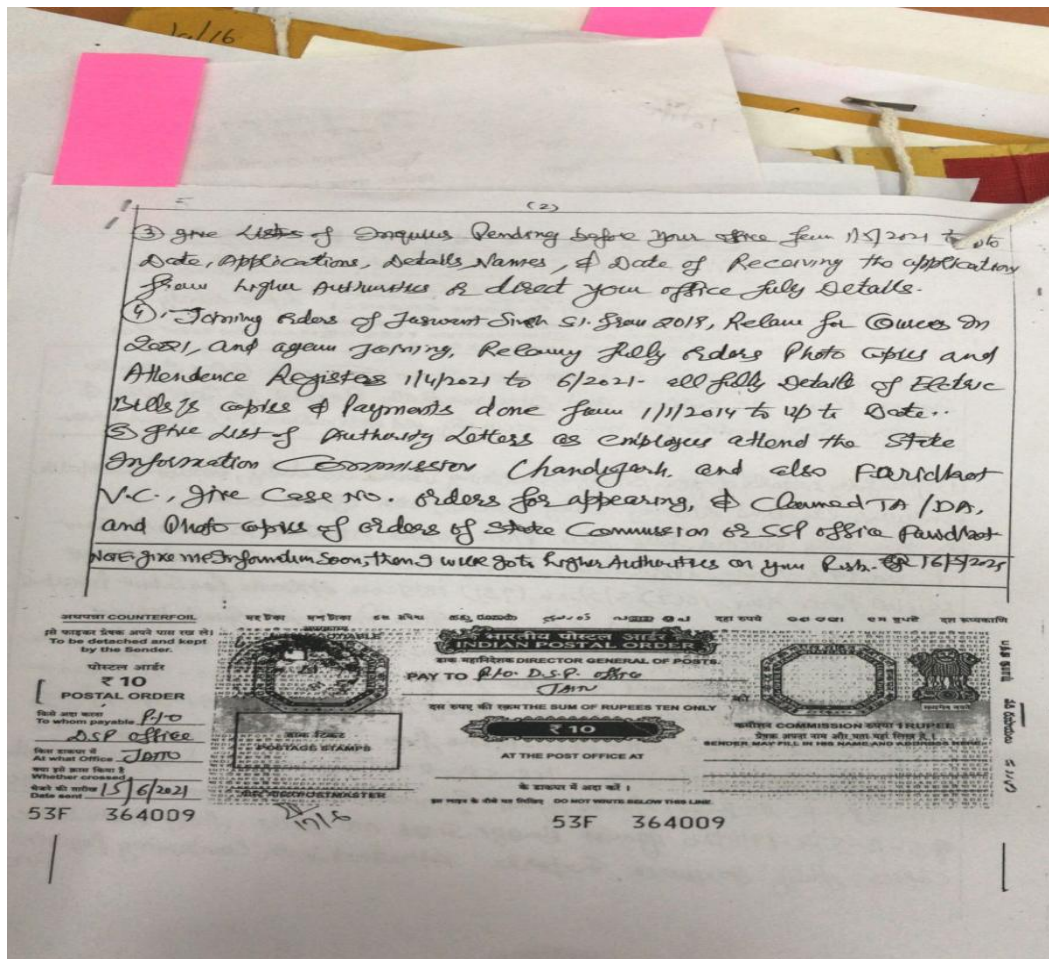 1/16
(2)
③ give Lists of Inquires Pending before your office from 1/5/2021 to
Date, Applications, Details, Names, & Date of Receiving the application
from higher Authorities & direct your office fully Details.
④ Joining orders of Jaswant Singh SI. from 2019, in
2021, and again Joining, fully orders Photo Copies and
Attendence Registers 1/4/2021 to 6/2021- all fully Details of Electric
Bills copies & Payments done from 1/1/2014 to up to Date..
⑤ give List of Authority Letters as employees attend the State
Information Commission Chandigarh and also Faridkot
V.C., give Case No. orders for appearing, & Claimed TA/DA,
and Photo copies of orders of State Commission or SSP office Faridkot
NOTE: give me Soon, then I higher Authorities on your Risk.
COUNTERFOIL
इसे फाड़कर प्रेषक अपने पास रख ले।
To be detached and kept
by the Sender.
पोस्टल आर्डर
₹ 10
POSTAL ORDER
To whom payable P.I.O
D.S.P office
At what Office Jaito
Whether crossed
Date sent 15/6/2021
53F 364009
भारतीय पोस्टल आर्डर
INDIAN POSTAL ORDER
डाक महानिदेशक DIRECTOR GENERAL OF POSTS.
PAY TO P.I.O. D.S.P. office
को
दस रुपए की रकम THE SUM OF RUPEES TEN ONLY
₹ 10
डाक टिकट
POSTAGE STAMPS
AT THE POST OFFICE AT
के डाकघर में अदा करें।
POSTMASTER
17/6
DO NOT WRITE BELOW THIS LINE
53F 364009
COMMISSION 1 RUPEE
SENDER MAY FILL IN HIS NAME AND ADDRESS HERE